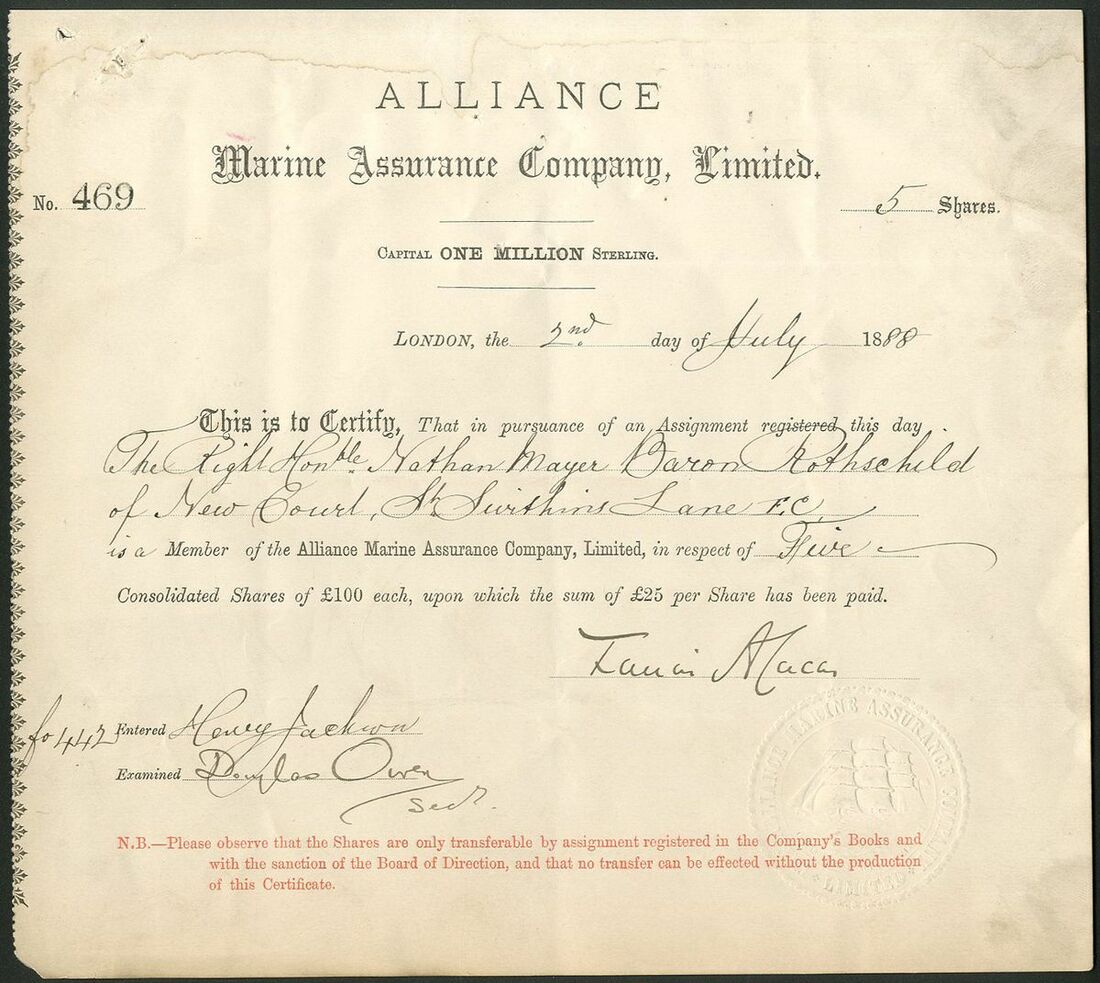 ALLIANCE
Marine Assurance Company, Limited.
No. 469
5 Shares.
CAPITAL ONE MILLION STERLING.
LONDON, the 2nd. day of July 1888
This is to Certify, That in pursuance of an Assignment registered this day
The Right Honble. Nathan Mayer Baron Rothschild
of New Court, St Swithins Lane E.C.
is a Member of the Alliance Marine Assurance Company, Limited, in respect of Five
Consolidated Shares of £100 each, upon which the sum of £25 per Share has been paid.
fo 442 Entered Henry Jackson
Examined Douglas Owen
Secy.
ALLIANCE MARINE ASSURANCE COMPANY
LIMITED
N.B.—Please observe that the Shares are only transferable by assignment registered in the Company's Books and
with the sanction of the Board of Direction, and that no transfer can be effected without the production
of this Certificate.